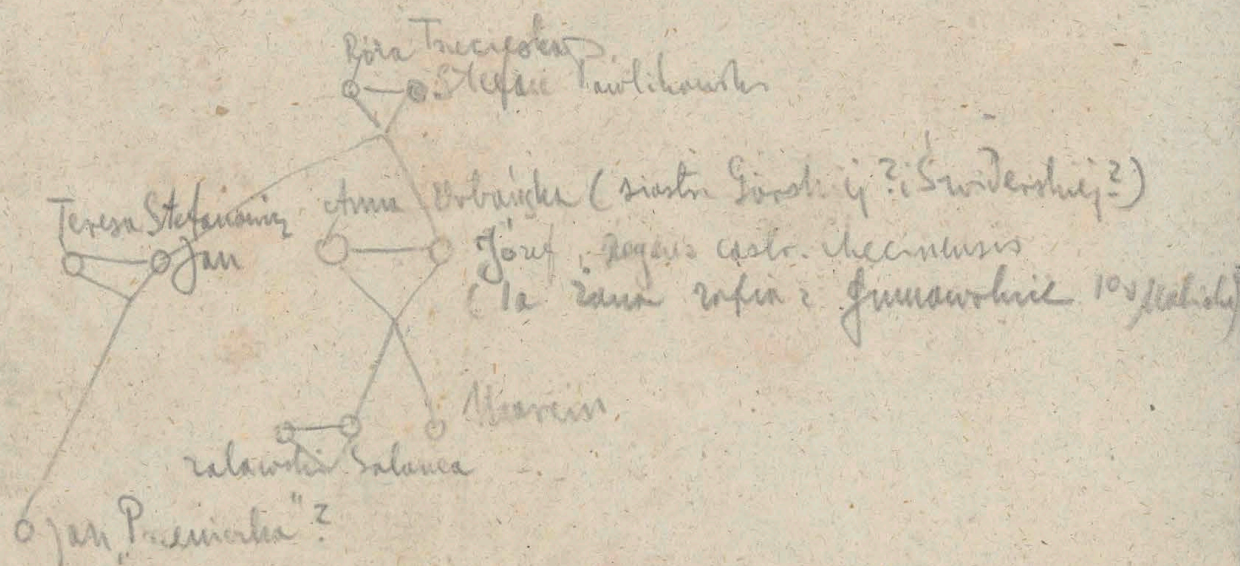 Róża Trzecieska
Stefan Pawlikowski
Teresa Stefanowicz
Jan
Anna Urbańska (siostra Górskiej? i Świderskiej?)
Józef, castr. Checinensis
(1a żona Zofia z
Marcin
Zalawski Salomea
Jan „Pszeniczka" ?